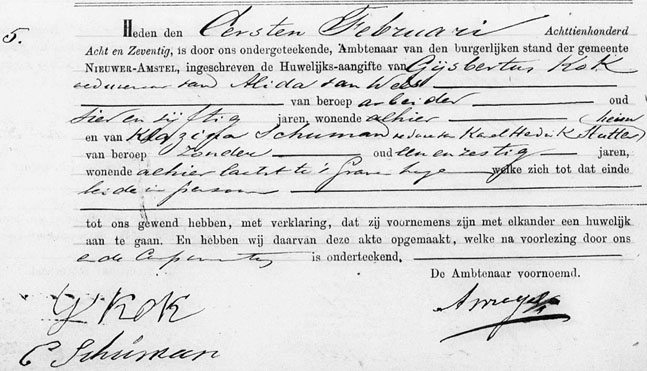 5.
Heden den Eersten Februari Achttienhonderd
Acht en Zeventig, is door ons ondergeteekende, Ambtenaar van den burgerlijken stand der gemeente
Nieuwer-Amstel, ingeschreven de Huwelijks-aangifte van Gijsbertus Kok
weduwnaar van Alida van Wees
van beroep arbeider oud
vier en vijftig jaren, wonende alhier
en van Klazina Schuman weduwe Karel Hendrik Hutter
van beroep zonder oud een en zestig jaren,
wonende alhier laatst te 's Gravenhage welke zich tot dat einde
beide in persoon
tot ons gewend hebben, met verklaring, dat zij voornemens zijn met elkander een huwelijk
aan te gaan. En hebben wij daarvan deze akte opgemaakt, welke na voorlezing door ons
en de Comparanten is onderteekend.
De Ambtenaar voornoemd.
G Kok
C Schuman